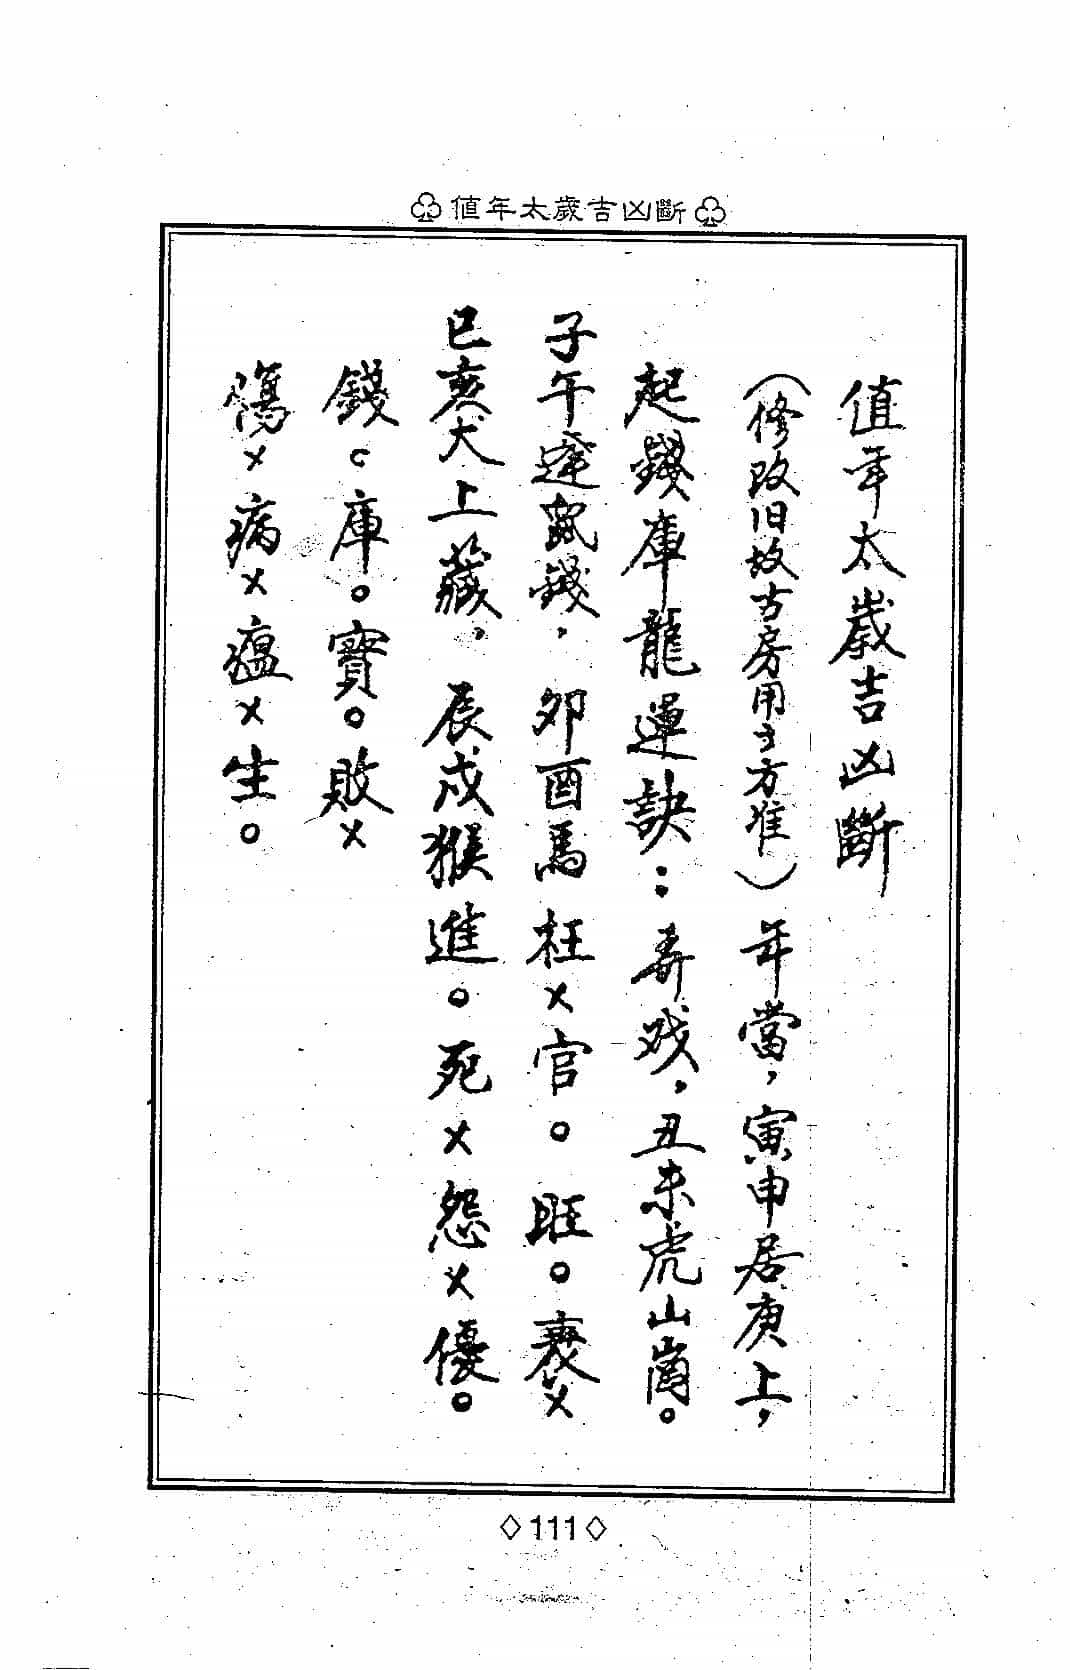 値年太歲吉凶斷
值年太歲吉凶斷
（修改旧故古房用才方准）年當，寅申居庚上，
起錢庫龍運訣：弄戏，丑未虎山崗。
子午逢鼠錢，卯酉馬枉×官。旺。衰×
巳亥犬上藏，辰戌猴進。死×怨×優。
錢。庫。寶。敗×
傷×病×瘟×生。
111